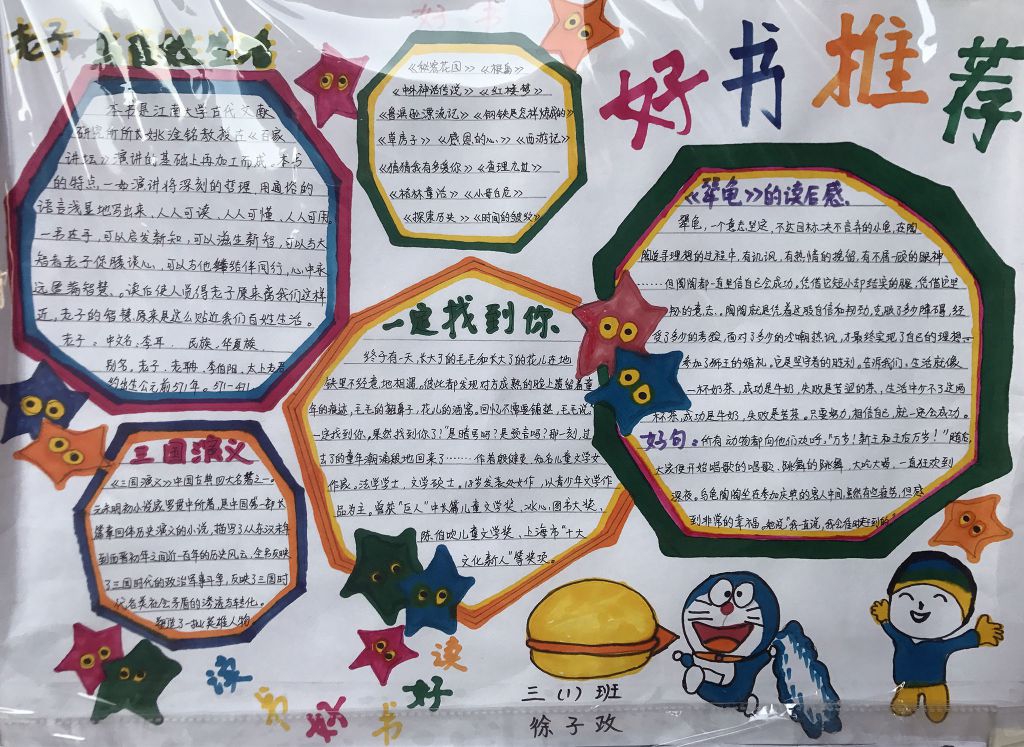 好书推荐
老子
百姓生活
本书是江南大学古代文献
研究所所长姚淦铭教授在《百家
讲坛》演讲的基础上再加工而成。本书
的特点一如演讲将深刻的哲理,用通俗的
语言浅显地写出来,人人可读、人人可懂、人人可用。
一书在手,可以启发新知,可以滋生新智,可以与大
智者老子促膝谈心,可以与他
伴同行,心中永
远置满智慧。读后使人觉得老子原来离我们这样
近,老子的智慧原来是这么贴近我们百姓生活。
老子。中文名,李耳、民族,华夏族、
别名,老子、老聃、李伯阳、太上老君
约出生公元前571年。
《秘密花园》《根鸟》
《中外神话传说》《红楼梦》
《鲁滨逊漂流记》《钢铁是怎样炼成的》
《草房子》《感恩的心》《西游记》
《猜猜我有多爱你》《查理九世》
《格林童话》《小哥白尼》
《探索历史》《时间的皱纹》
《犟龟》的读后感
犟龟,一个意志坚定,不达目标决不言弃的小龟,在陶
陶追寻理想的过程中,有讥讽,有热情的挽留,有不屑一顾的眼神
……但陶陶都一直坚信自己会成功,凭借它短小却结实的腿,凭借它坚
韧的意志。陶陶就是凭着这股自信和韧劲,克服了多少障碍,经
受了多少的考验,面对了多少的冷嘲热讽,才最终实现了自己的理想——
参加了狮王的婚礼。它是坚守者的胜利,告诉我们,生活就像
一杯奶茶,成功是牛奶,失败是苦涩的茶,生活中少不了这两
杯茶,成功是牛奶,失败是苦茶。只要努力,相信自己,就一定会成功。
好句。所有动物都向他们欢呼,“万岁!新王和王后万岁!”随后,
大家便开始唱歌的唱歌、跳舞的跳舞,大吃大喝,一直狂欢到
深夜。乌龟陶陶坐在参加庆典的客人中间,虽然有些疲劳,但感
到非常的幸福。她说“我一直说,我会准时赶到的”
一定找到你
终于有一天,长大了的毛毛和长大了的花儿在地
铁里不经意地相遇。彼此都发现对方成熟的脸上遗留着童
年的痕迹,毛毛的翘鼻子,花儿的酒窝。回忆不需要铺垫,毛毛说:
一定找到你,果然找到你了?”是暗号吗?是预言吗?那一刻,过
去了的童年潮涌般地回来了……作者殷健灵,知名儿童文学女
作家。法学学士,文学硕士。18岁发表处女作,以青少年文学作
品为主,曾获“巨人”中长篇儿童文学奖,冰心图书大奖,
陈伯吹儿童文学奖、上海市“十大
文化新人”等奖项。
三国演义
《三国演义》中国古典四大名著之一。
元末明初小说家罗贯中所著,是中国第一部长
篇章回体历史演义的小说,描写了从东汉末年
到西晋初年之间近一百年的历史风云,全书反映
了三国时代的政治军事斗争,反映了三国时
代各类社会矛盾的渗透与转化。
塑造了一批英雄人物
读
好
书
好
读
三(1)班
徐子孜